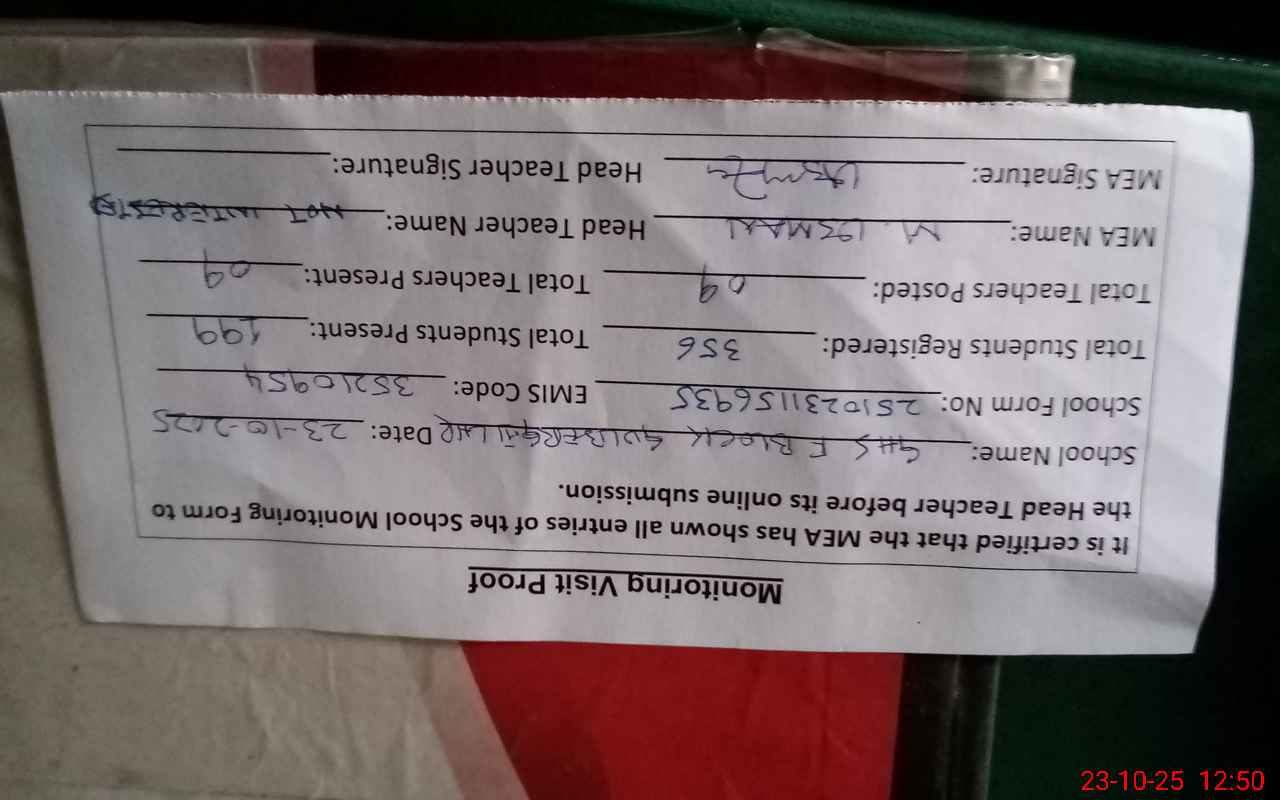 Monitoring Visit Proof
It is certified that the MEA has shown all entries of the School Monitoring Form to
the Head Teacher before its online submission.
School Name: GHS F BLOCK GULBERG II LHR Date: 23-10-2025
School Form No: 2510231156935 EMIS Code: 35210954
Total Students Registered: 356 Total Students Present: 199
Total Teachers Posted: 09 Total Teachers Present: 09
MEA Name: M. USMAN Head Teacher Name: NOT INTERESTED
MEA Signature: Head Teacher Signature:
23-10-25 12:50